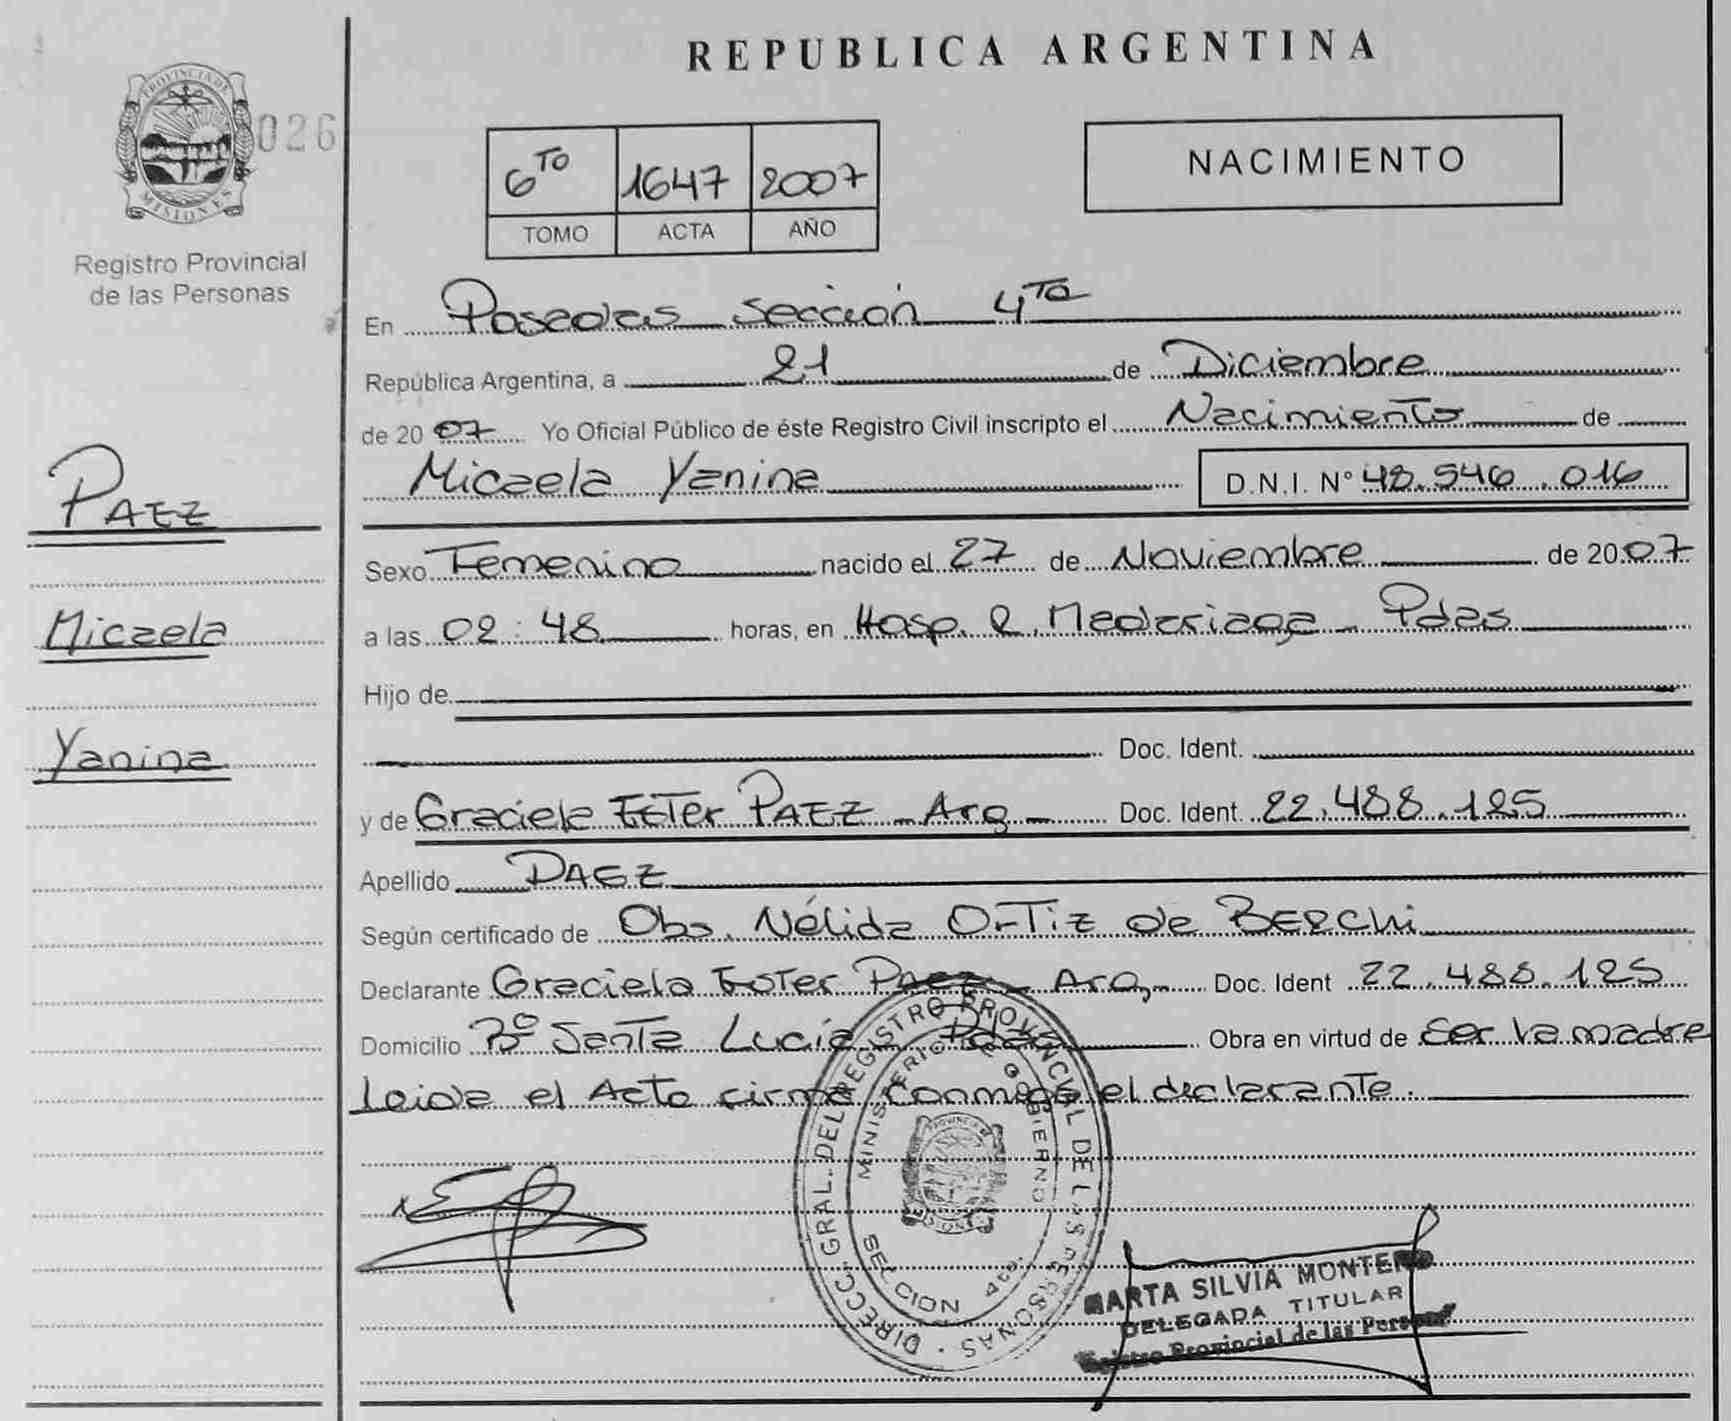 REPUBLICA ARGENTINA
PROVINCIA DE
MISIONES
026
Registro Provincial
de las Personas
6TO 1647 2007
TOMO ACTA AÑO
NACIMIENTO
En Posadas sección 4Ta
República Argentina, a 21 de Diciembre
de 2007 Yo Oficial Público de éste Registro Civil inscripto el Nacimiento de
Micaela Yanina D.N.I. Nº 48.546.016
PAEZ
Micaela
Yanina
Sexo Femenino nacido el 27 de Noviembre de 2007
a las 02:48 horas, en Hosp. R. Madariaga - Pdas
Hijo de
Doc. Ident.
y de Graciela Ester PAEZ - Arg - Doc. Ident. 22.488.125
Apellido PAEZ
Según certificado de Obs. Nélida Ortiz de BERCHI
Declarante Graciela Ester Paez - Arg - Doc. Ident 22.488.125
Domicilio Bº Santa Lucía Pdas Obra en virtud de Ser la madre
Leida el Acta firma conmigo el declarante.
DIRECC. GRAL. DEL REGISTRO PROVINCIAL DE LAS PERSONAS
MINISTERIO DE GOBIERNO
SECCION 4ta.
MARTA SILVIA MONTERO
DELEGADA TITULAR
Registro Provincial de las Personas